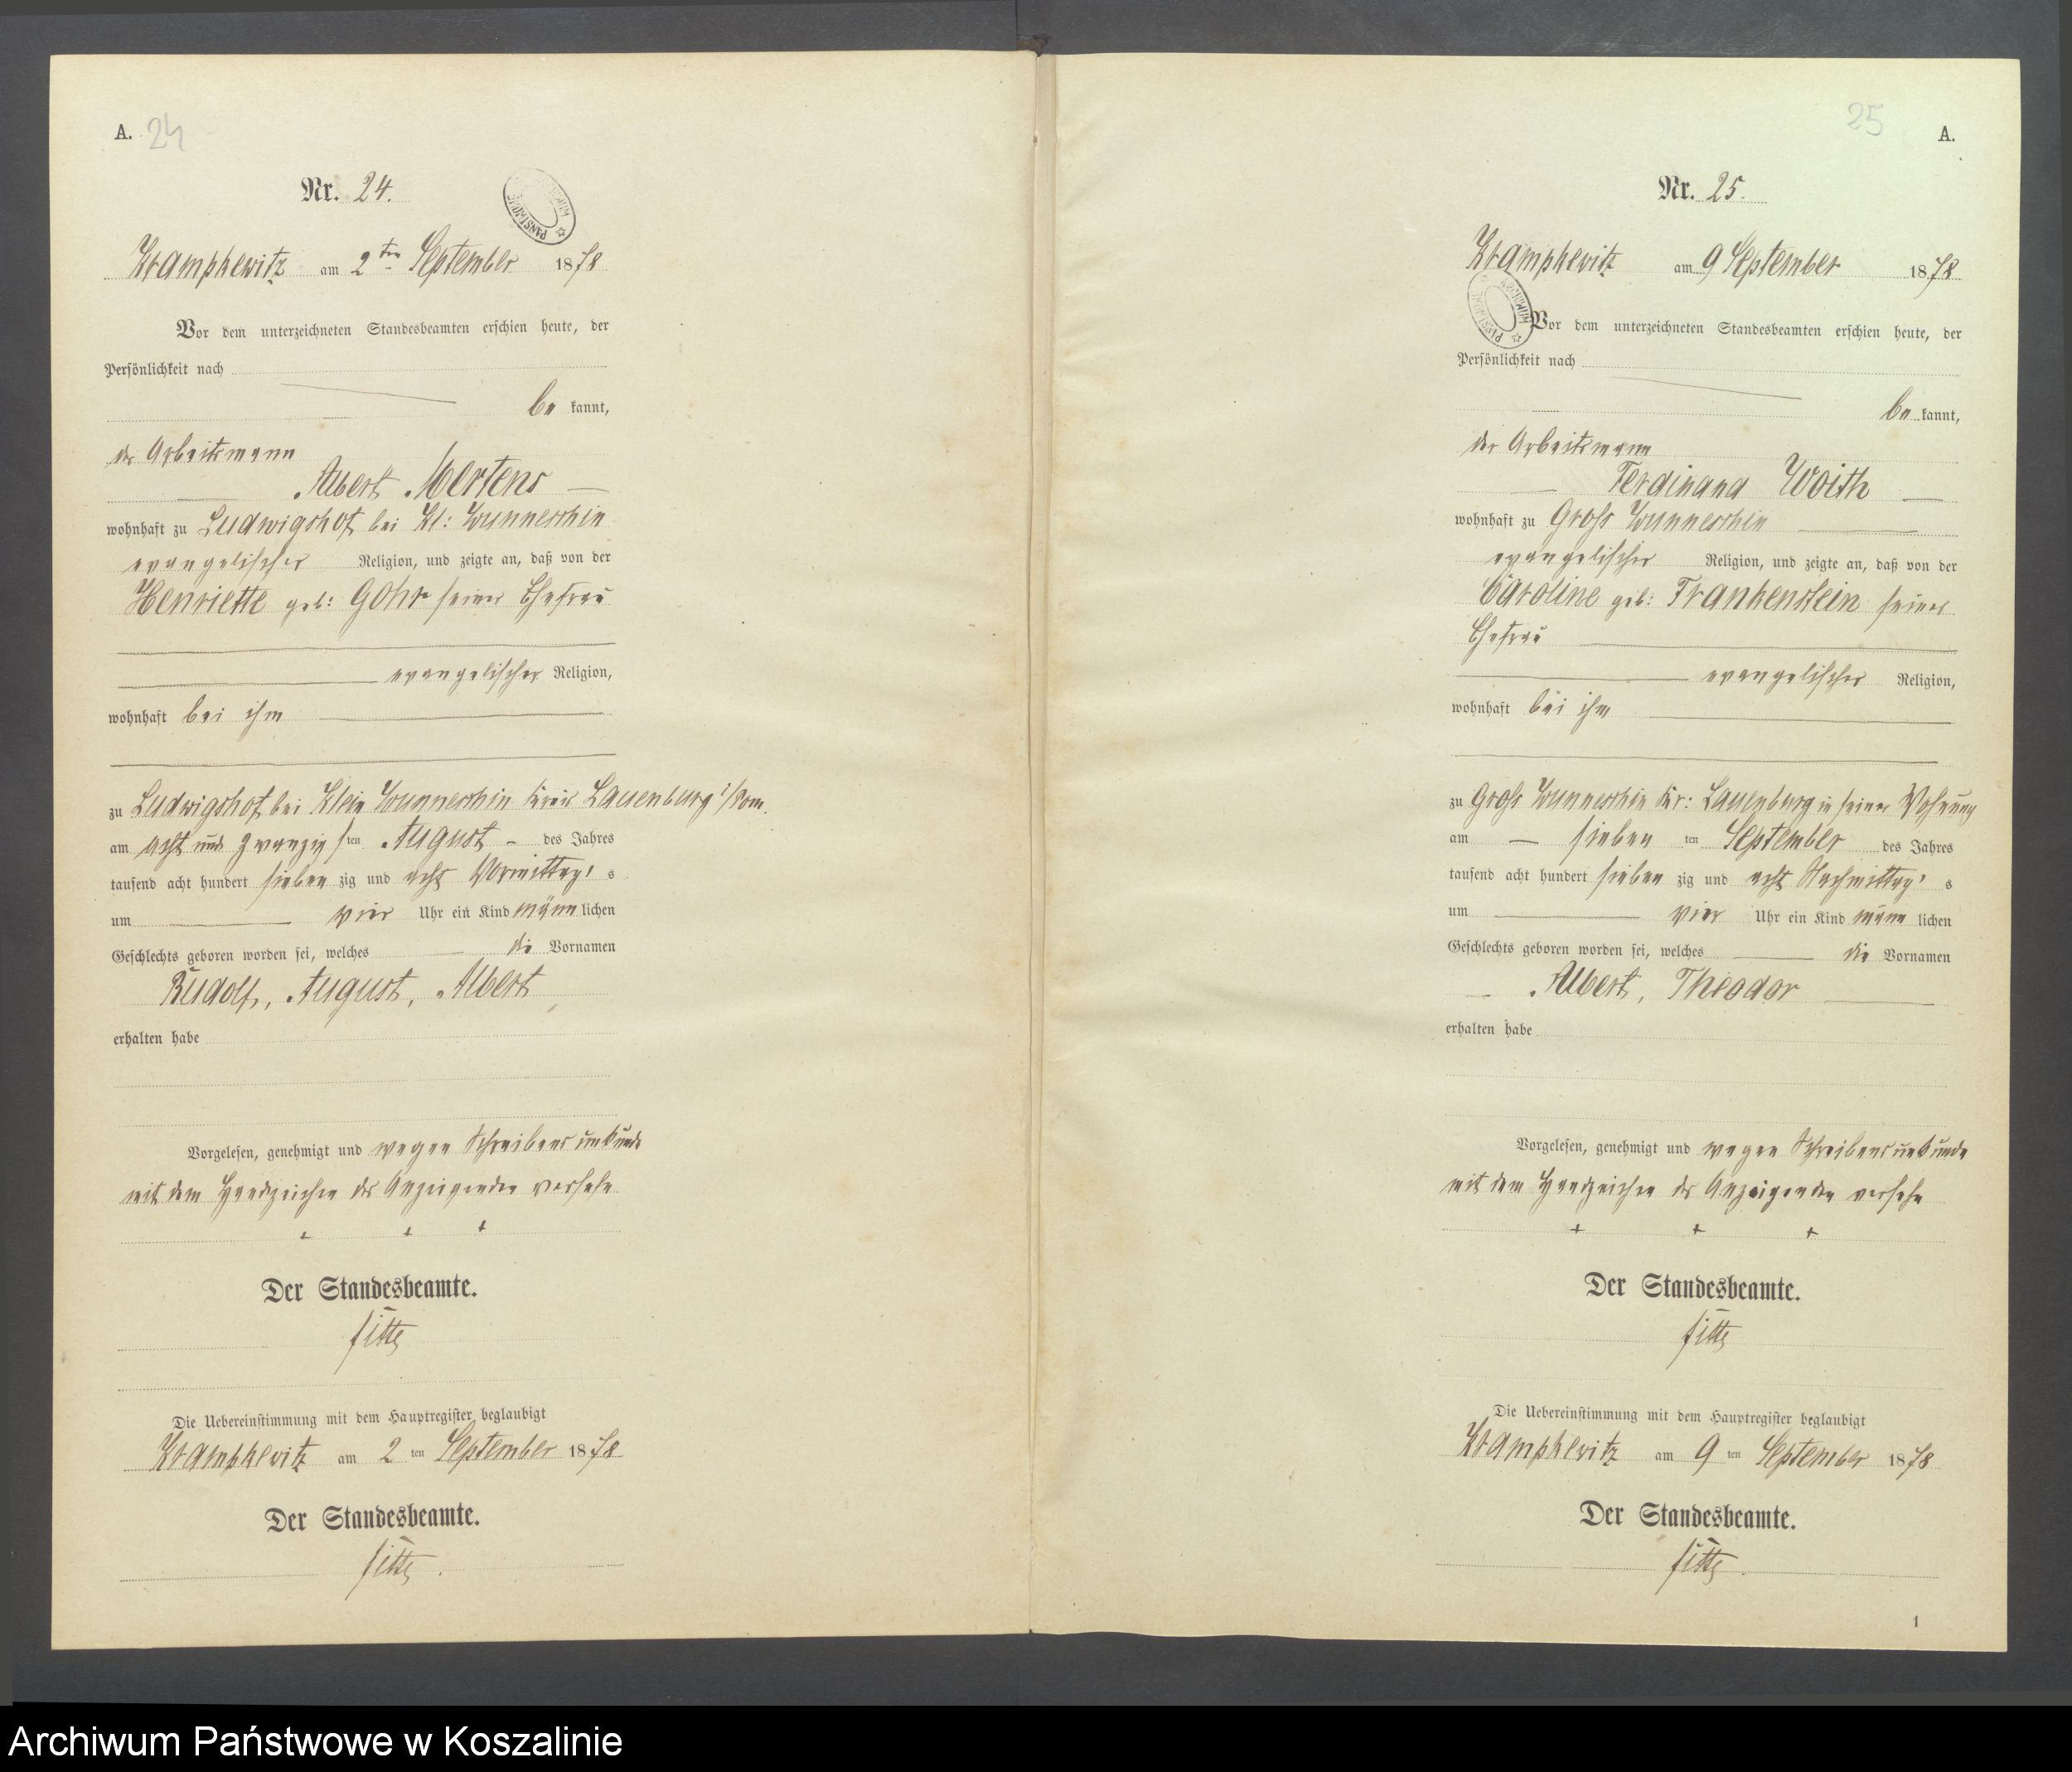 A. 24
Nr. 24.
Krampkewitz am 2ten September 1878
Vor dem unterzeichneten Standesbeamten erschien heute, der
Persönlichkeit nach
be kannt,
der Arbeitsmann
Albert Mertens
wohnhaft zu Ludwigshof bei Kl: Wunneschin
evangelischer Religion, und zeigte an, daß von der
Henriette geb: Gohr seiner Ehefrau
evangelischer Religion,
wohnhaft bei ihm
zu Ludwigshof bei Klein Wunneschin Kreis Lauenburg i/Pom.
am acht und zwanzigsten August des Jahres
tausend acht hundert sieben zig und acht Vormittag's
um vier Uhr ein Kind männ lichen
Geschlechts geboren worden sei, welches die Vornamen
Rudolf, August, Albert
erhalten habe
Vorgelesen, genehmigt und wegen Schreibensunkunde
mit dem Handzeichen des Anzeigenden versehn
+ + +
Der Standesbeamte.
Die Uebereinstimmung mit dem Hauptregister beglaubigt
Krampkewitz am 2 ten September 1878
Der Standesbeamte.
25 A.
Nr. 25.
Krampkewitz am 9 September 1878
Vor dem unterzeichneten Standesbeamten erschien heute, der
Persönlichkeit nach
be kannt,
der Arbeitsmann
Ferdinand Woith
wohnhaft zu Groß Wunneschin
evangelischer Religion, und zeigte an, daß von der
Caroline geb: Frankenstein seiner
Ehefrau
evangelischer Religion,
wohnhaft bei ihm
zu Groß Wunneschin Kr: Lauenburg in seiner Wohnung
am sieben ten September des Jahres
tausend acht hundert sieben zig und acht Nachmittag's
um vier Uhr ein Kind männ lichen
Geschlechts geboren worden sei, welches die Vornamen
Albert, Theodor
erhalten habe
Vorgelesen, genehmigt und wegen Schreibensunkunde
mit dem Handzeichen des Anzeigenden versehn
+ + +
Der Standesbeamte.
Die Uebereinstimmung mit dem Hauptregister beglaubigt
Krampkewitz am 9 ten September 1878
Der Standesbeamte.
1
Archiwum Państwowe w Koszalinie